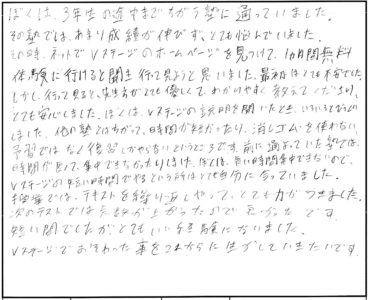 ぼくは、3年生の途中までちがう塾に通っていました。
その塾では、あまり成績が伸びず、とても悩んでいました。
その時、ネットでVステージのホームページを見つけて、1か月間無料
体験に行けると聞き行って見ようと思いました。最初はとても不安でした。
しかし、行って見ると、先生方がとても優しくて、わかりやすく教えてくださり、
とても安心しました。ぼくは、Vステージの説明を聞いたとき、いろいろとおどろき
しました。他の塾とはちがって、時間が短かったり、消しゴムを使わない、
予習ではなく復習しかやらないというところです。前に通っていた塾では、
時間が長くて、集中できなかったりしました。ぼくは、長い時間集中できないので、
Vステージの短い時間でやるという所はとても自分に合っていました。
授業では、テキストを繰り返しやって、とても力がつきました。
次のテストでは点数が上がったので良かったです。
短い間でしたがとてもいい経験になりました。
Vステージでおそわった事をこれからに生かしていきたいです。